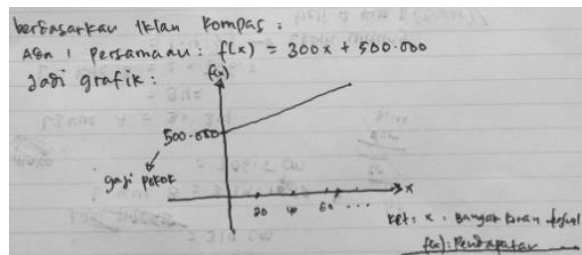 berdasarkan Iklan Kompas :
Ada 1 persamaan : f(x) = 300x + 500.000
Jadi grafik :
f(x)
500.000
gaji pokok
x
20 40 60 ....
ket : x : banyak koran terjual
f(x) : Pendapatan